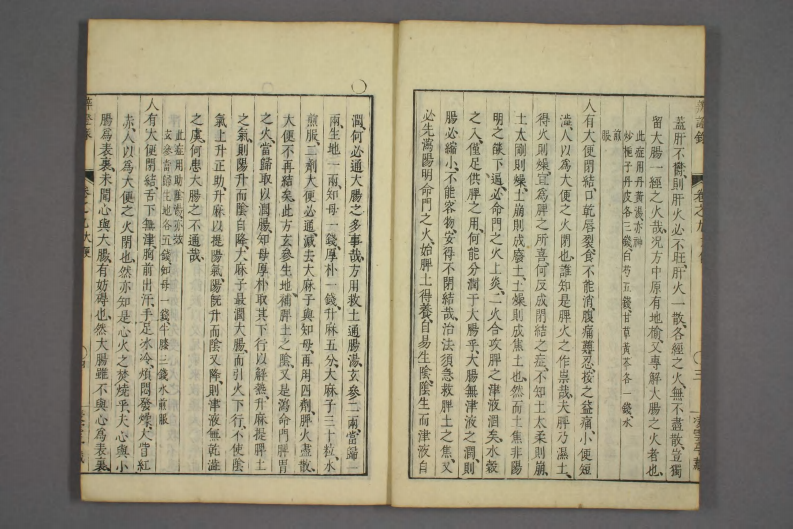 蓋肝不鬱則肝火必不旺肝火一散各經之火無不盡散豈獨
留大腸一經之火哉況方中原有地榆又專解大腸之火者也
此症用丹黃湯亦神
炒梔子丹皮各三錢白芍五錢甘草黃芩各一錢水
煎
服
人有大便閉結口乾唇裂食不能消腹痛難忍按之益痛小便短
澁人以為大便之火閉也誰知是脾火之作祟哉夫脾乃濕土
得火則燥宜為脾之所喜何反成閉結之症不知土太柔則崩
土太剛則燥土崩則成廢土土燥則成焦土也然而土焦非陽
明之薩下逼必命門之火上炎二火合攻脾之津液涸矣水穀
之入僅足供脾之用何能分潤于大腸乎大腸無津液之潤則
腸必縮小不能容物安得不閉結哉治法須急救脾土之焦又
必先瀉陽明命門之火始脾土得養自易生陰陰生而津液自
潤何必通大腸之多事哉方用救土通腸湯玄參二兩當歸一
兩生地一兩知母一錢厚朴一錢升麻五分大麻子三十粒水
煎服二劑大便必通減去大麻子與知母再用四劑脾火盡散
大便不再結矣此方玄參生地補脾土之陰又是瀉命門脾胃
之火當歸取以潤腸知母厚朴取其下行以解熱升麻提脾土
之氣則陽升而陰自降大麻子最潤大腸而引火下行不使陰
氣上升正助升麻以提陽氣陽既升而陰又降則津液無乾澁
之虞何患大腸之不通哉
此症用助脾湯亦效
玄參當歸生地各五錢知母一錢牛膝三錢水煎服
人有大便閉結舌下無津胸前出汗手足冰冷煩悶發燥大眥紅
赤人以為大便之火閉也然亦知是心火之焚燒乎夫心與小
腸為表裏未聞心與大腸有妨碍也然大腸雖不與心為表裏